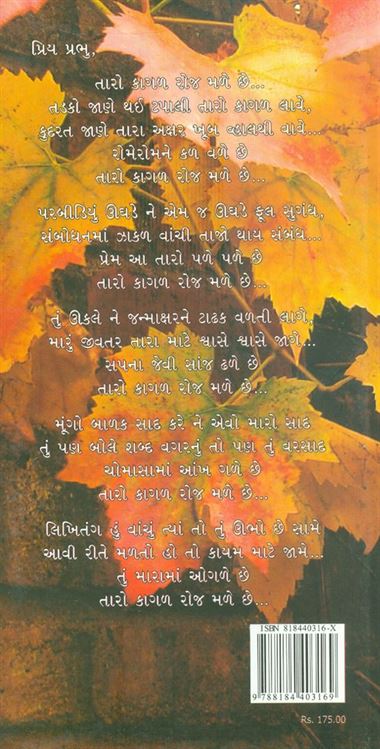 પ્રિય પ્રભુ,
તારો કાગળ રોજ મળે છે...
તડકો જાણે થઈ ટપાલી તારો કાગળ લાવે,
કુદરત જાણે તારા અક્ષર ખૂબ વ્હાલથી વાવે...
રોમેરોમને કળ વળે છે
તારો કાગળ રોજ મળે છે...
પરબીડિયું ઊઘડે ને એમ જ ઊઘડે ફૂલ સુગંધ,
સંબોધનમાં ઝાકળ વાંચી તાજો થાય સંબંધ...
પ્રેમ આ તારો પળે પળે છે
તારો કાગળ રોજ મળે છે...
તું ઊકલે ને જન્માક્ષરને ટાઢક વળતી લાગે,
મારું જીવતર તારા માટે શ્વાસે શ્વાસે જાગે...
સપના જેવી સાંજ ઢળે છે
તારો કાગળ રોજ મળે છે...
મૂંગો બાળક સાદ કરે ને એવો મારો સાદ
તું પણ બોલે શબ્દ વગરનું તો પણ તું વરસાદ
ચોમાસામાં આંખ ગળે છે
તારો કાગળ રોજ મળે છે...
લિખિતંગ હું વાંચું ત્યાં તો તું ઊભો છે સામે
આવી રીતે મળતો હો તો કાયમ માટે જામે...
તું મારામાં ઓગળે છે
તારો કાગળ રોજ મળે છે...
ISBN 818440316-X
9 788184 403169
Rs. 175.00